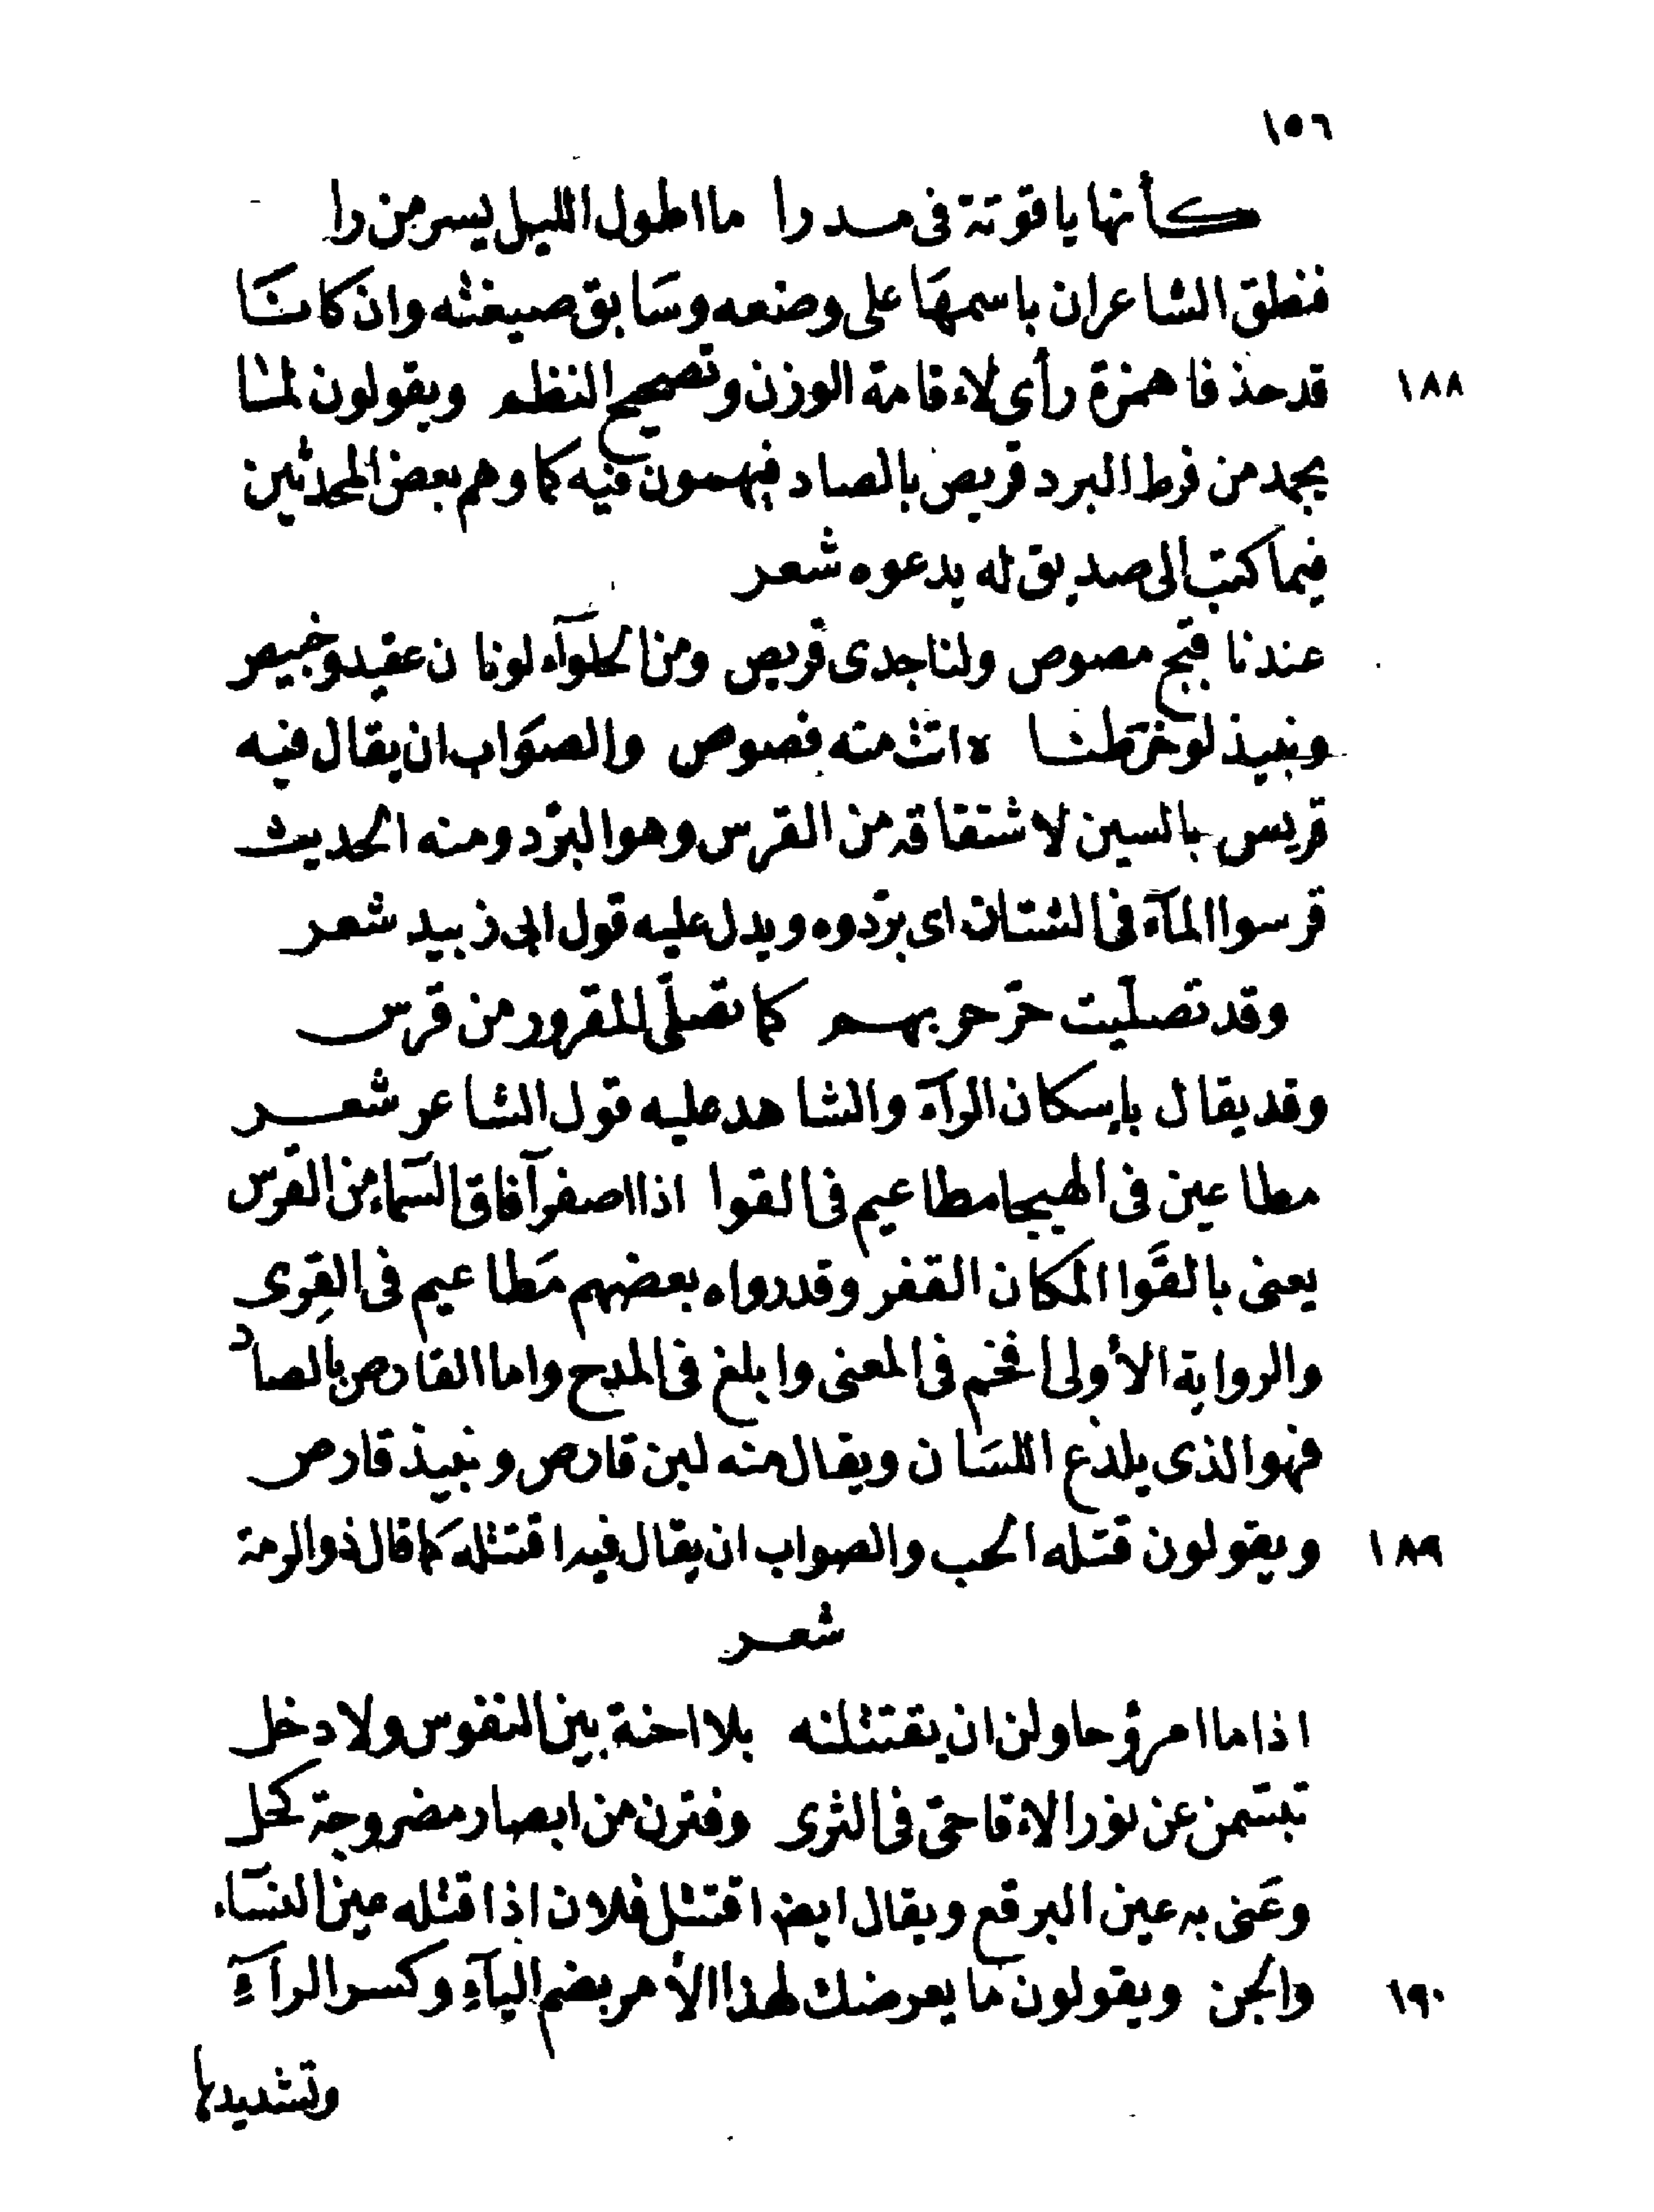 ١٥٦
كأنها ياقوتة فى مسدرا ما اطول الليل يسر من را
فنطق الشاعران باسمهَا على وضعه وسَابق صيغته وان كانتَا
١٨٨ قد حذفا همزة رأى لاءقامة الوزن وتصحيح النظم ويقولون لمشا
يجمد من فرط البرد قريص بالصاد فيهمون فيه كما وهم بعض المحدثين
فيما كتب الى صديق له يدعوه شعر
عندنا قبج مصوص ولنا جدى قريص ومن الحلوآء لونان عقيد وخبيص
ونبيذ لو خرطنا ه اتث منه فصوص والصوَاب ان يقال فيه
قريس بالسين لاشتقاقه من القرس وهو البرْد ومنه الحديث
قرسوا المآء فى الشتان اى برّدوه ويدل عليه قول ابى زبيد شعر
وقد تصليت حرّ حربهم كما تصلّى المقرور من قرس
وقد يقال بإسكان الرآء والشاهد عليه قول الشاعر شعر
مطاعين فى الهيجا مطاعيم فى القوا اذا اصفر آفاق السَماء من القرس
يعنى بالقَوا المكان القفر وقد رواه بعضهم مَطاعيم فى القِرى
والرواية الأولى افخم فى المعنى وابلغ فى المدح واما القارص بالصاد
فهو الذى يلذع اللسَان ويقال منه لبن قارص ونبيذ قارص
١٨٩ ويقولون قتله الحب والصواب ان يقال فيه اقتتله كما قال ذو الرمة
شعر
اذا ما امرؤ حاولن ان يقتتلنه بلا احنة بين النفوس ولا دخل
تبسَّمن عن نور الاءقاحىّ فى الثرى وفترن من ابصار مضروجة كحل
وعَنى به عين البرقع ويقال ايضا اقتتل فلان اذا قتله عين النسَاء
١٩٠ والجن ويقولون ما يعرضك لهذا الأمر بضم اليآءِ وكسر الرآءِ
وتشديدها